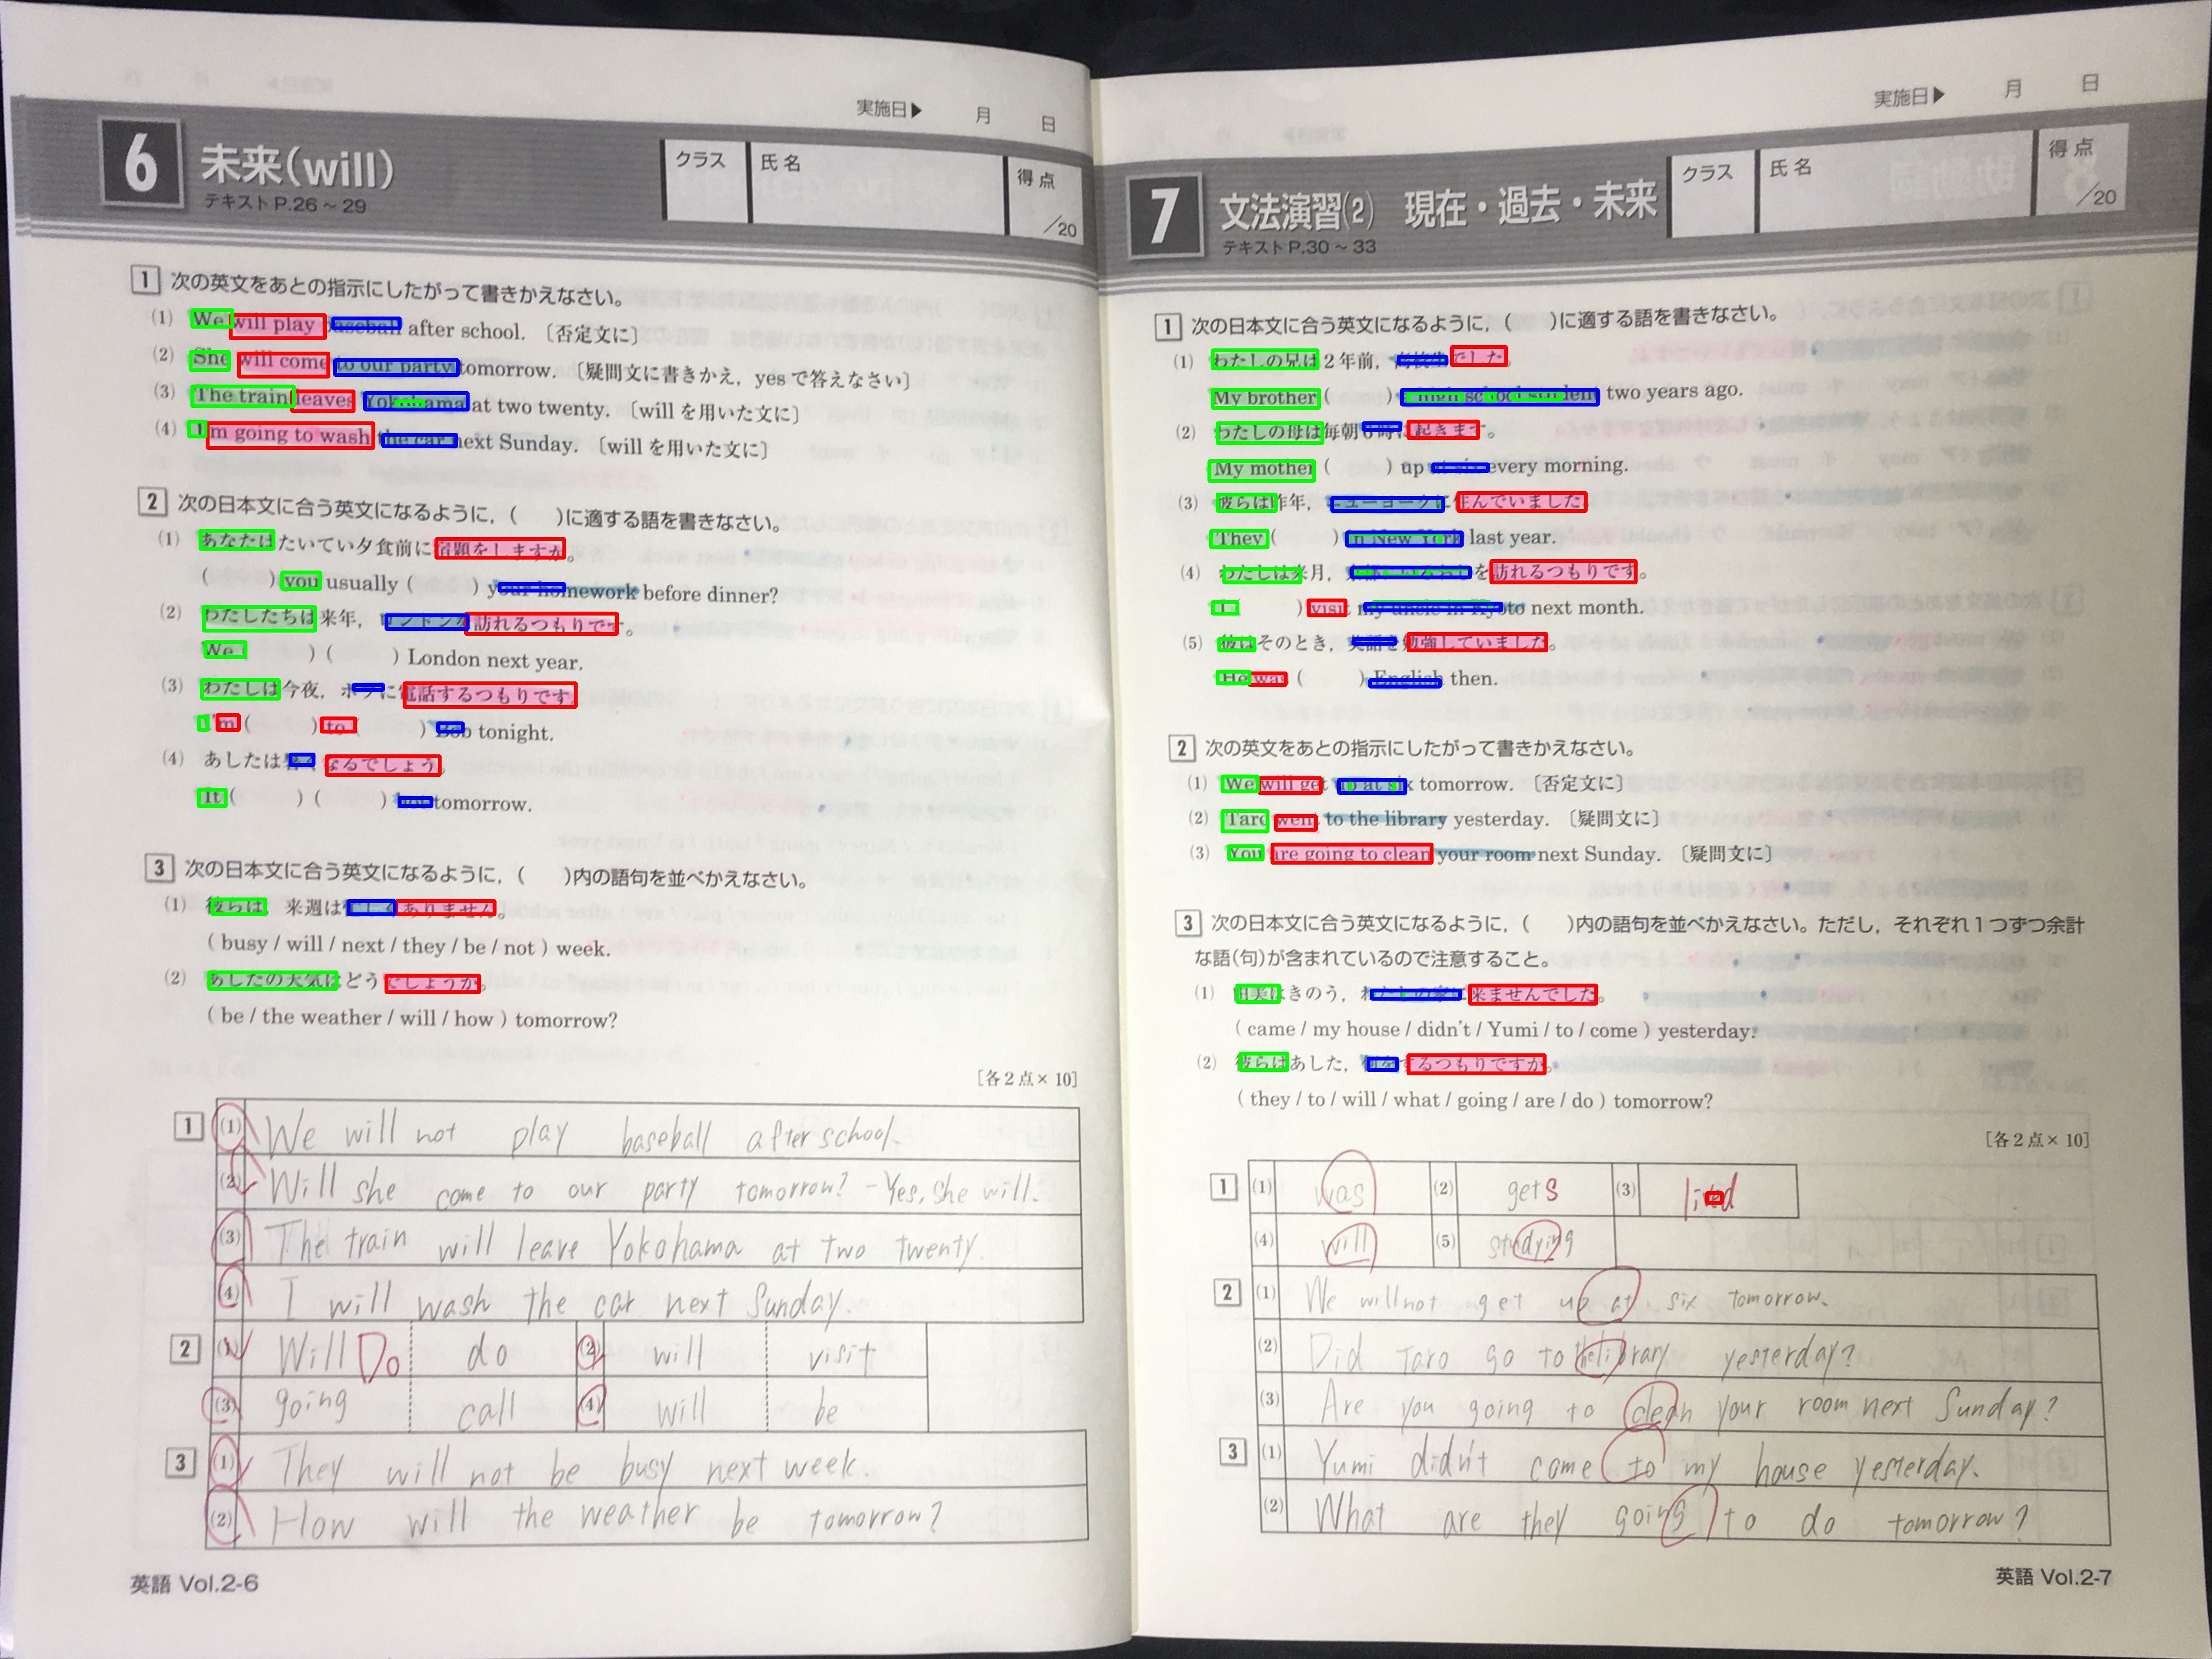 実施日▶ 月 日
6 未来(will)
テキストP.26～29
クラス 氏名 得点 /20
1 次の英文をあとの指示にしたがって書きかえなさい。
(1) We will play baseball after school. 〔否定文に〕
(2) She will come to our party tomorrow. 〔疑問文に書きかえ，yesで答えなさい〕
(3) The train leaves Yokohama at two twenty. 〔willを用いた文に〕
(4) I'm going to wash the car next Sunday. 〔willを用いた文に〕
2 次の日本文に合う英文になるように，( )に適する語を書きなさい。
(1) あなたはたいてい夕食前に宿題をしますか。
( ) you usually ( ) your homework before dinner?
(2) わたしたちは来年，ロンドンを訪れるつもりです。
We ( ) ( ) London next year.
(3) わたしは今夜，ボブに電話するつもりです。
I'm ( ) to ( ) Bob tonight.
(4) あしたは暑くなるでしょう。
It ( ) ( ) hot tomorrow.
3 次の日本文に合う英文になるように，( )内の語句を並べかえなさい。
(1) 彼らは，来週は忙しくありません。
( busy / will / next / they / be / not ) week.
(2) あしたの天気はどうでしょうか。
( be / the weather / will / how ) tomorrow?
[各2点×10]
1 (1) We will not play baseball after school.
(2) Will she come to our party tomorrow? - Yes, she will.
(3) The train will leave Yokohama at two twenty.
(4) I will wash the car next Sunday.
2 (1) Will Do do (2) will visit
(3) going call (4) will be
3 (1) They will not be busy next week.
(2) How will the weather be tomorrow?
英語 Vol.2-6
実施日▶ 月 日
7 文法演習(2) 現在・過去・未来
テキストP.30～33
クラス 氏名 得点 /20
1 次の日本文に合う英文になるように，( )に適する語を書きなさい。
(1) わたしの兄は2年前，高校生でした。
My brother ( ) a high school student two years ago.
(2) わたしの母は毎朝6時に起きます。
My mother ( ) up at six every morning.
(3) 彼らは昨年，ニューヨークに住んでいました。
They ( ) in New York last year.
(4) わたしは来月，を訪れるつもりです。
I ( ) visit my uncle in Kyoto next month.
(5) 彼はそのとき，英語を勉強していました。
He was ( ) English then.
2 次の英文をあとの指示にしたがって書きかえなさい。
(1) We will get up at six tomorrow. 〔否定文に〕
(2) Taro went to the library yesterday. 〔疑問文に〕
(3) You are going to clean your room next Sunday. 〔疑問文に〕
3 次の日本文に合う英文になるように，( )内の語句を並べかえなさい。ただし，それぞれ1つずつ余計
な語(句)が含まれているので注意すること。
(1) 由美はきのう，わたしの家に来ませんでした。
( came / my house / didn't / Yumi / to / come ) yesterday.
(2) 彼らはあした，何をするつもりですか。
( they / to / will / what / going / are / do ) tomorrow?
[各2点×10]
1 (1) was (2) gets (3)
(4) will (5) studying
2 (1) We will not get up at six tomorrow.
(2) Did Taro go to the library yesterday?
(3) Are you going to clean your room next Sunday?
3 (1) Yumi didn't come to my house yesterday.
(2) What are they going to do tomorrow?
英語 Vol.2-7